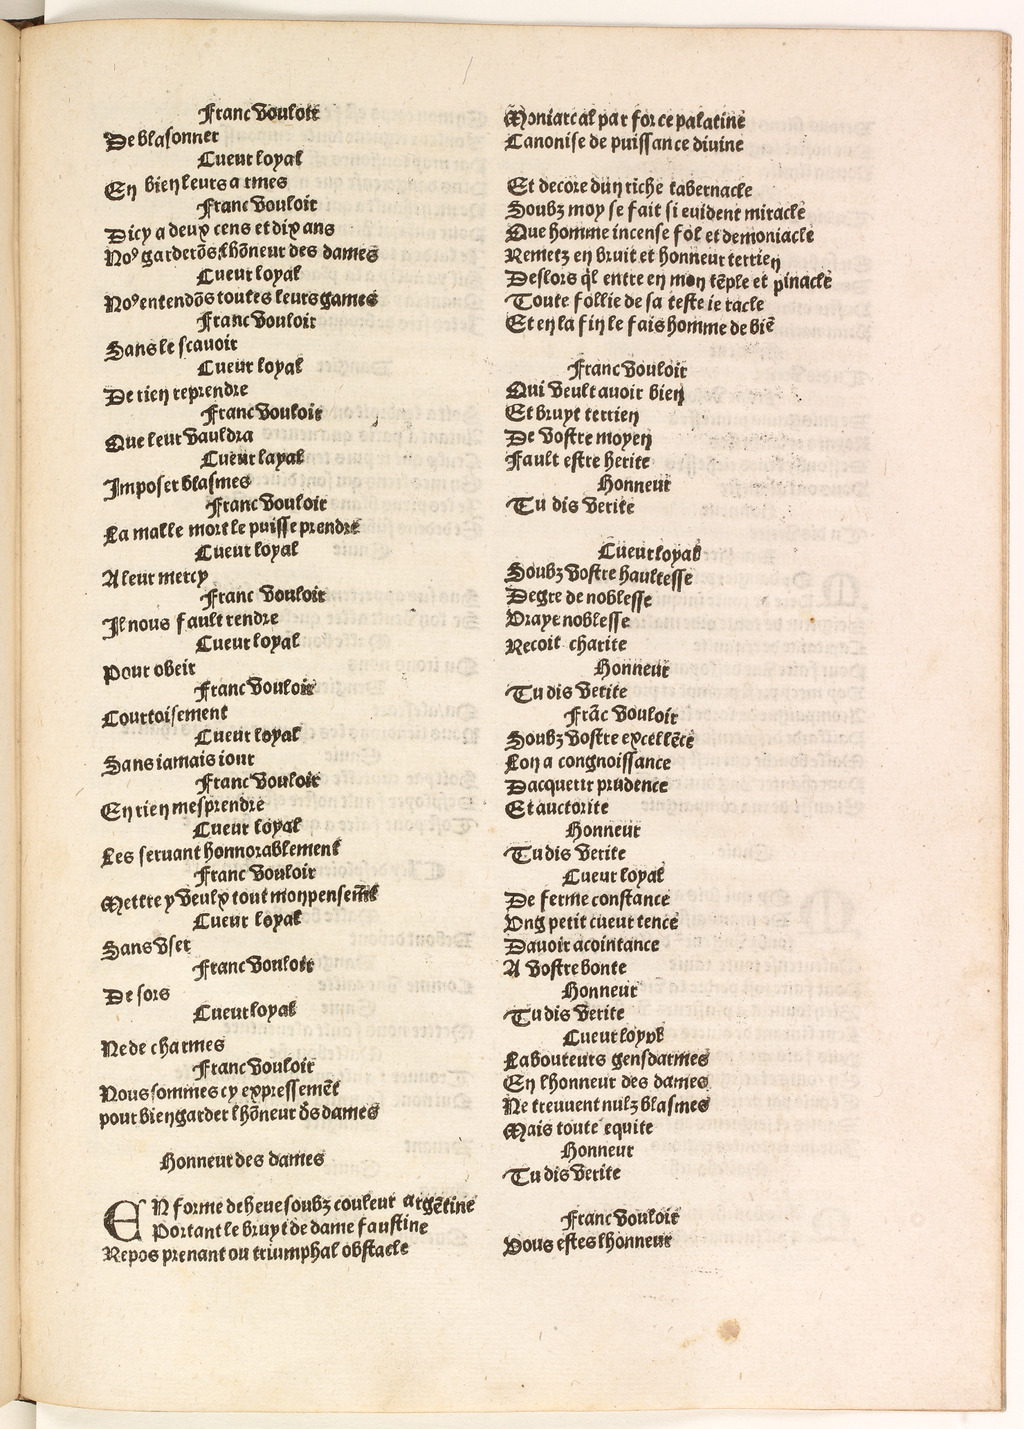 Franc Vouloir
De blasonner
Cueur loyal
En bien leurs armes
Franc Vouloir
Dicy a deux cens et dix ans
Noꝰ garderõs lhõneur des dames
Cueur loyal
Noꝰ entendõs toutes leurs games
Franc Vouloir
Sans le scauoir
Cueur loyal
De rien reprendre
Franc Vouloir
Que leur vauldra
Cueur layal
Imposer blasmes
Franc Vouloir
La malle mort le puisse prendre
Cueur loyal
A leur mercy
Franc Vouloir
Il nous fault rendre
Cueur loyal
Pour obeir
Franc Vouloir
Courtoisement
Cueur loyal
Sans iamais iour
Franc Vouloir
En rien mesprendre
Cueur loyal
Les seruant honnorablement
Franc Vouloir
Mettre y veulx tout mon pensemẽt
Cueur loyal
Sans vser
Franc Vouloir
De sors
Cueur loyal
Ne de charmes
Franc Vouloir
Nous sommes cy expressemẽt
pour bien garder lhõneur d̃s dames
Honneur des dames
EN forme de heue soubz couleur argẽtine
Portant le bruyt de dame faustine
Repos prenant ou triumphal obstacle
Moniarcal par force palatine
Canonise de puissance diuine
Et decore dun riche tabernacle
Soubz moy se fait si euident miracle
Que homme incense fol et demoniacle
Remetz en bruit et honneur terrien
Deslors q̃l entre en mon tẽple et pinacle
Toute follie de sa teste ie racle
Et en la fin le fais homme de biẽ
Franc Vouloir
Qui veult auoir bien
Et bruyt terrien
De vostre moyen
Fault estre herite
Honneur
Tu dis verite
Cueur loyal
Soubz vostre haultesse
Degre de noblesse
Vraye noblesse
Recoit charite
Honneur
Tu dis verite
Frãc Vouloir
Soubz vostre excellẽce
Lon a congnoissance
Dacquerir prudence
Et auctorite
Honneur
Tu dis verite
Cueur loyal
De ferme constance
Vng petit cueur tence
Dauoir acointance
A vostre bonte
Honneur
Tu dis verite
Cueur loyal
Labouteurs gensdarmes
En lhonneur des dames
Ne treuuent nulz blasmes
Mais toute equite
Honneur
Tu dis verite
Franc Vouloir
Vous estes lhonneur